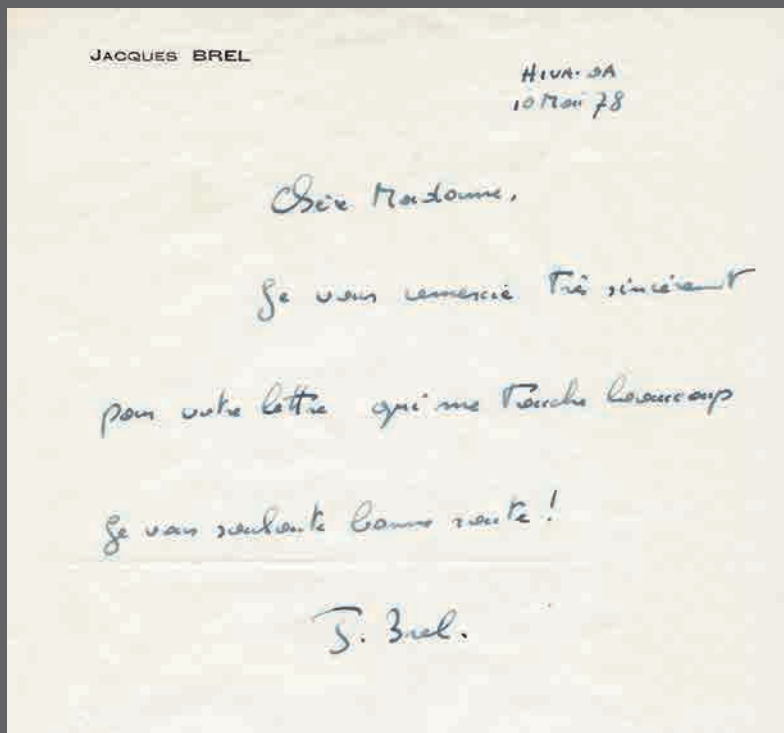 JACQUES BREL
HIVA-OA
10 Mai 78
Chère Madame,
Je vous remercie très sincèrement
pour votre lettre qui me touche beaucoup
Je vous souhaite bonne route !
J. Brel.